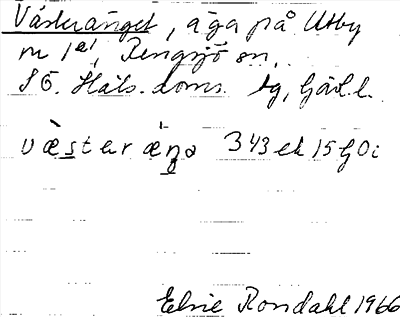 Västeränget, äga på Utby
nr 1 e', Rengsjö sn,
SÖ. Häls. doms. tg, Gävl. l.
væsteræŋa 343 ek 15 G0i
Elsie Rondahl 1966